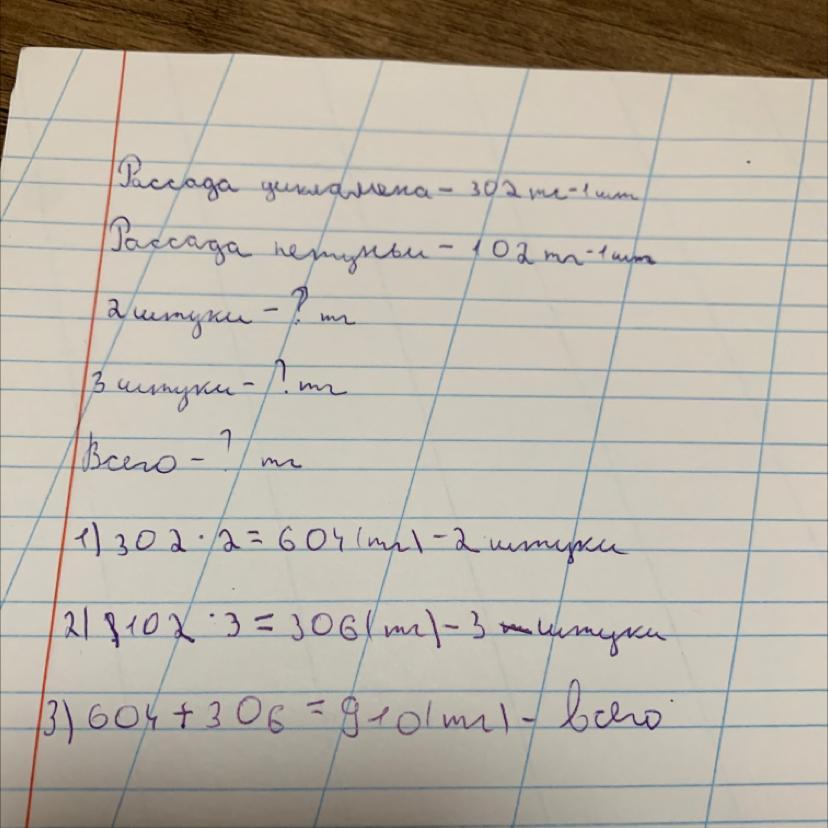 Рассада цикламена - 302 тг - 1 шт
Рассада петуньи - 102 тг - 1 шт
2 штуки - ? тг
3 штуки - ? тг
Всего - ? тг
1) 302 · 2 = 604 (тг) - 2 штуки
2) 102 · 3 = 306 (тг) - 3 штуки
3) 604 + 306 = 910 (тг) - всего